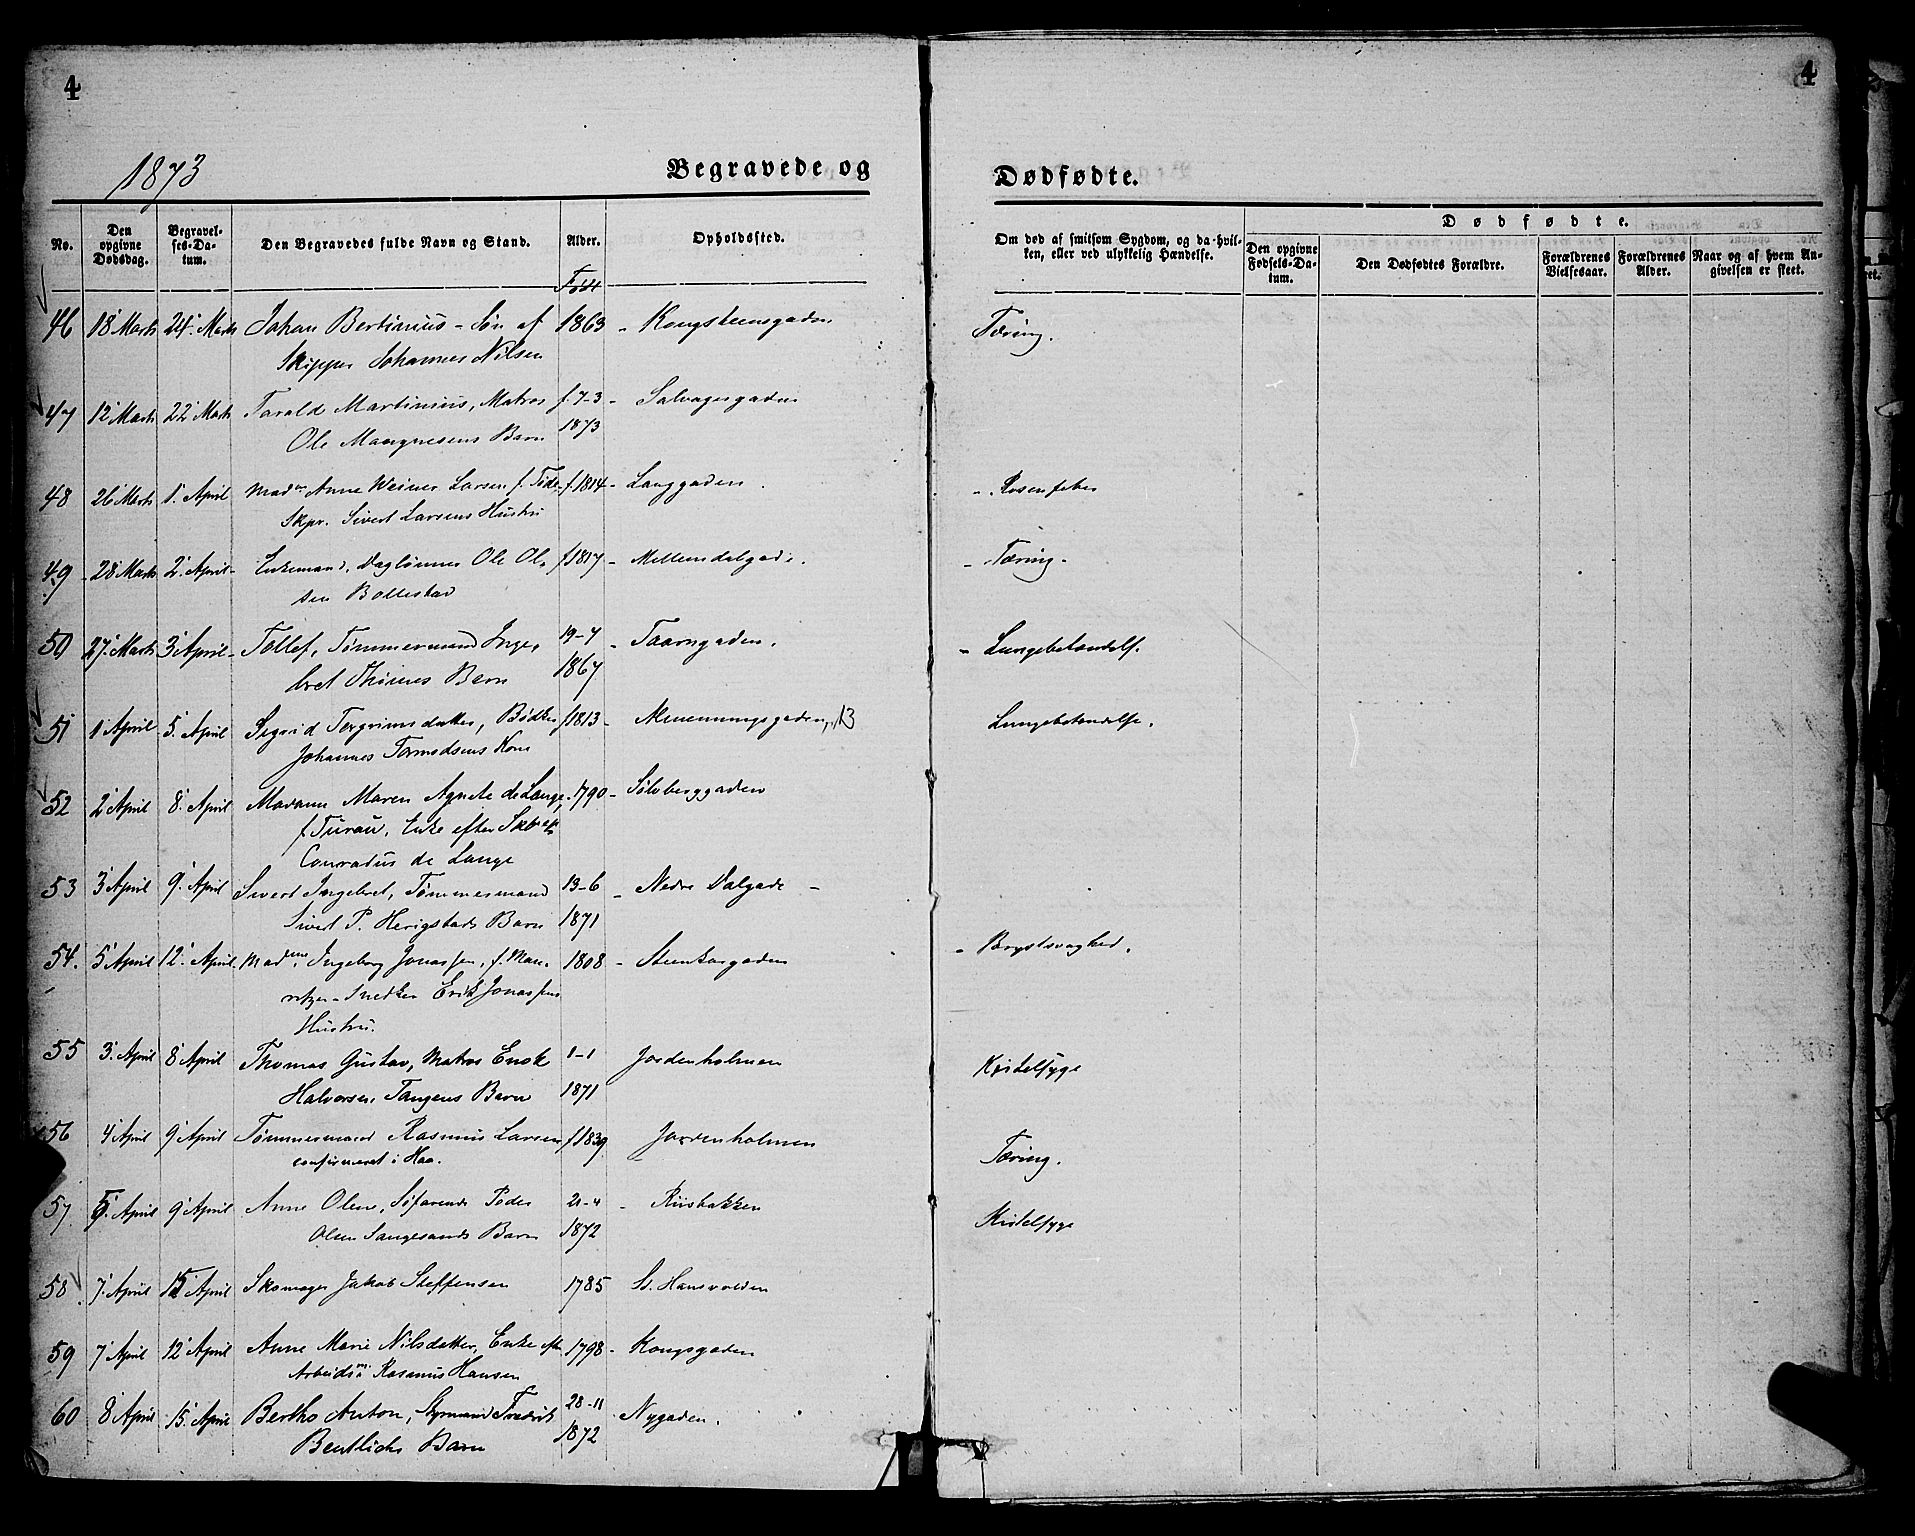 4
4
1873
Begravede og
Dødfødte.
No.
Den opgivne Dødsdag.
Begravelses-Datum.
Den Begravedes fulde Navn og Stand.
Alder.
Opholdssted.
Om død af smitsom Sygdom, og da hvilken, eller ved ulykkelig Hændelse.
Dødfødte.
Den opgivne Fødsels-Datum.
Den Dødfødtes Forældre.
Forældrenes Vielsesaar.
Forældrenes Alder.
Naar og af hvem Angivelsen er skeet.
Født
46 18 Marts 24. Marts Johan Bertinius - Søn af 1863 - Kongsteensgaden Tæring.
Skipper Johannes Nilsen
47 12 Marts 22 Marts Tarald Martinius, Matros f. 7-3 - Salvagergaden
Ole Mangnesens Barn 1873
48 26 Marts 1. April Madm Anne Weiner Larsen f. Tide f. 1814 - Langgaden. - Rosenfeber
Skpr. Sivert Larsens Hustru
49 - 28 Marts 2. April - Enkemand, Daglønner Ole Ol- f 1817 - Mellemdalgade. - Tæring -
sen Bollestad
50 27. Marts 3 April - Tollef, Tømmermand Inge- 19-7 - Taarngaden. - Lungebetændelse.
bret Thimes Barn 1867
51 1 April 5. April Sigrid Torgrimsdatter, Bødker f 1813 - gaden, 13 Lungebetændelse.
Johannes Tormodsens Kone
52 2 April 8. April Madame Maren Agnete de Lange, 1790 - Sølvberggaden
f. Turau, Enke efter Skb
Conradus de Lange
53 3 April 9. April Sivert Ingebret, Tømmermand 13-6 - Nedre Dalgade -
Sivert P. Herigstads Barn 1871
54. 5 April 12. April Madme. Ingeborg Jonassen, f. Mau- 1808 - Steenkargaden - Brystsvaghed.
ritzen - Snedker Erik Jonassens
Hustru.
55 3. April 8 April Thomas Gustav, Matros Enok 1-1 Jordenholmen Kirtelsyge
Halvorsen Tangens Barn 1871
56 4 April 9 April Tømmermand Rasmus Larsen f 1839 Jordenholmen Tæring.
confirmeret i Haa.
57 5. April 9 April Anne Oline, Søfarende Peder 21-4 - Riisbakken Kirtelsyge
Olsen Sangesands Barn 1872
58. 7. April 15 April Skomager Jakob Steffensen 1785 St. Hansvolden
59 7 April 12 April Anne Marie Nilsdatter, Enke eft 1798 - Kongsgaden
Arbeidsm Rasmus Hansen
60 8 April 15. April Bertho Anton, Styrmand Fredrik 28-11 - Nygaden.
Bentlichs Barn 1872